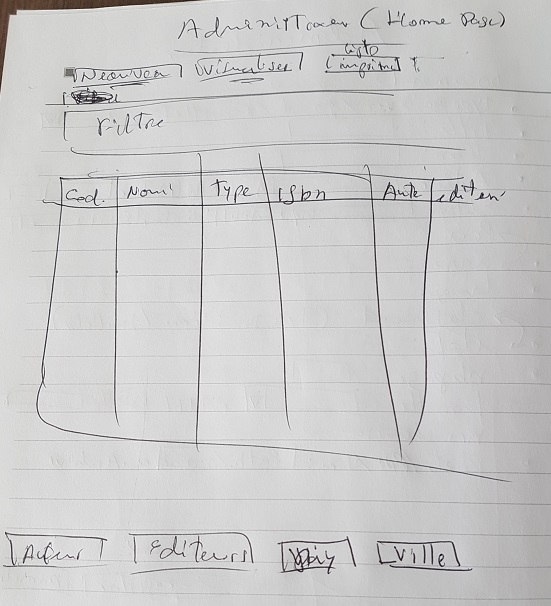 Administrateur (Home Page)
Nouveau Visualiser liste imprimé
Filtre
Cod. Nom Type ISbn Aute editeur
Auteur Editeurs Ville